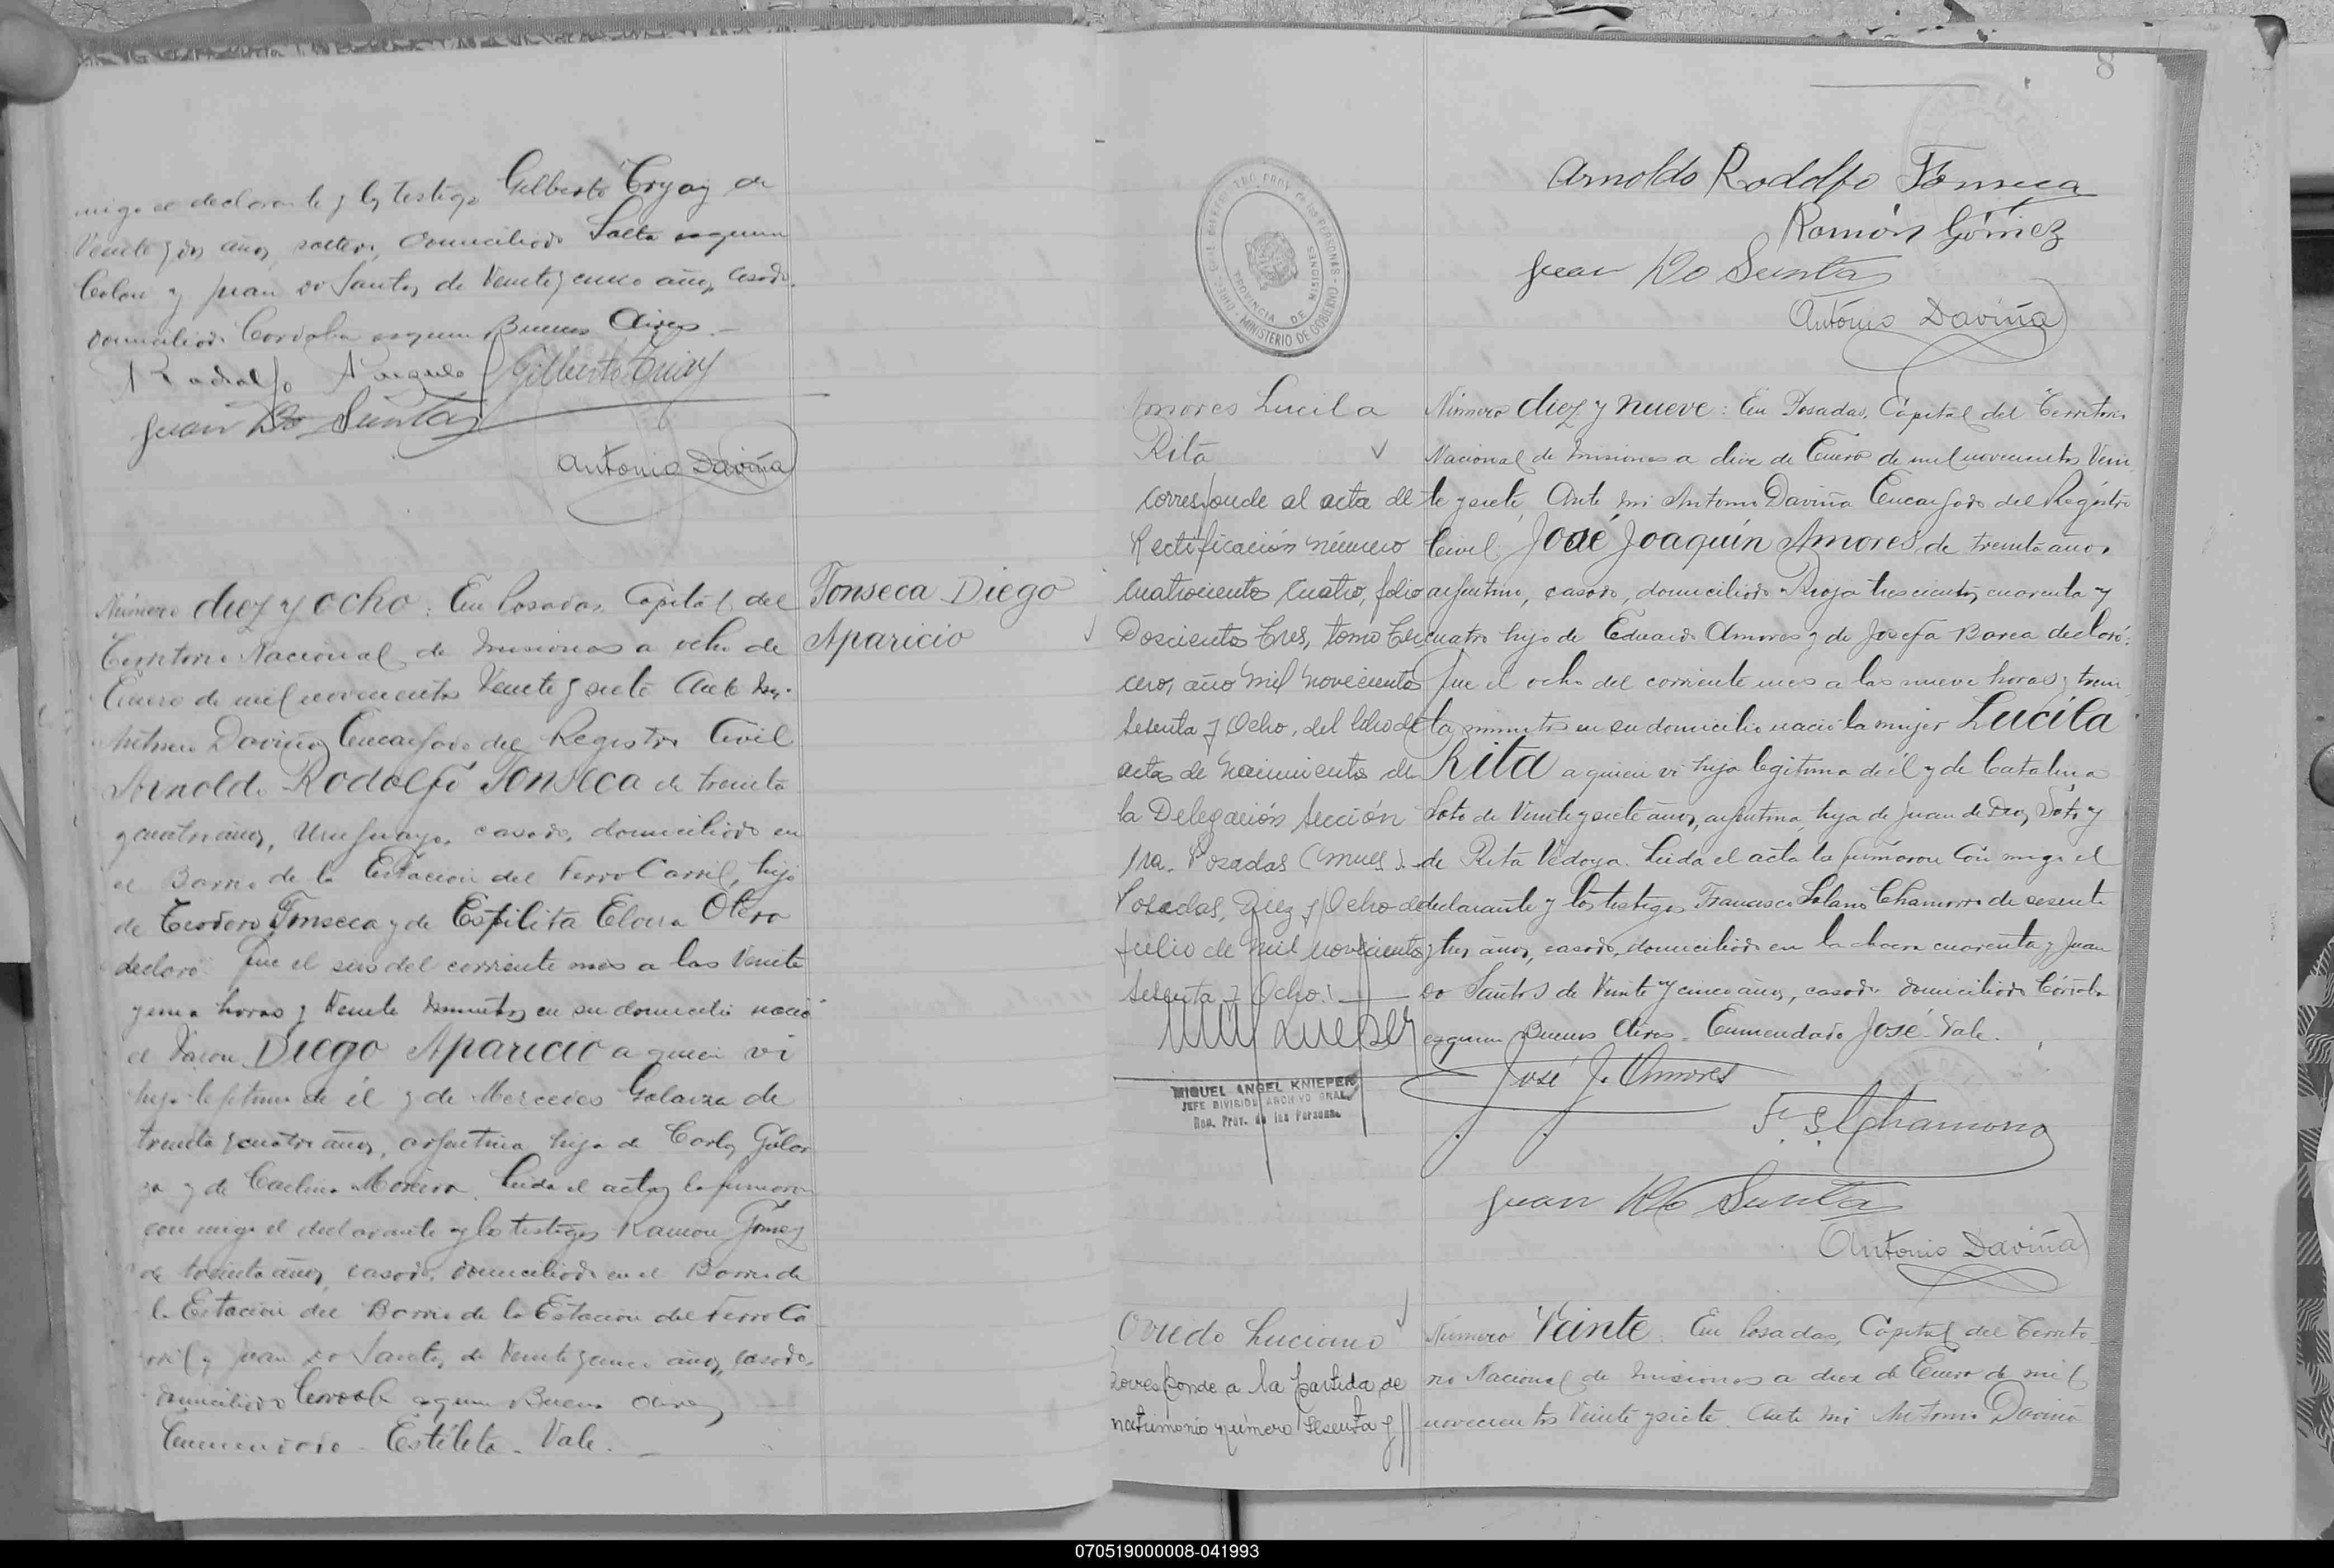 migo el declarante y los testigos Gilberto
Veinte y dos años, soltero, domiciliado Salta esquina
Colon y Juan do Santos, de Veinte y cinco años, casado,
domiciliado Cordoba esquina Buenos Aires.
Antonio Daviña
Número diez y ocho: En Posadas, Capital del
Territorio Nacional de Misiones a ocho de
Enero de mil novecientos Veinte y siete Ante mi.
Antonio Daviña Encargado del Registro Civil
Arnoldo Rodolfo Fonseca de treinta
y cuatro años, Uruguayo, casado, domiciliado en
el Barrio de la Estacion del Ferro Carril, hijo
de Teodoro Fonseca y de Elvira Otero
declaró: Que el seis del corriente mes a las Veinte
y una horas y Veinte minutos en su domicilio nació
el Varon Diego Aparicio a quien vi
hijo legitimo de él y de Mercedes Galarza de
treinta y cuatro años, argentina, hija de Carlos Galar
za y de Moreira. Leida el acta la firmaron
con migo el declarante y los testigos Ramon Gomez
de treinta años, casado, domiciliado en el Barrio de
la Estacion del Barrio de la Estacion del Ferro Ca
rril y Juan do Santos, de Veinte y cinco años, casado,
domiciliado Cordoba esquina Buenos Aires
Enmendado - Estilita - Vale.
Fonseca Diego
Aparicio
8
Arnoldo Rodolfo Fonseca
Ramón Gómez
Antonio Daviña
PROVINCIA DE MISIONES
MINISTERIO DE GOBIERNO
Amores Lucila
Rita
Corresponde al acta de
Rectificación número
Cuatrocientos Cuatro, folio
Doscientos Tres, tomo Ter
cero, año mil novecientos
sesenta y Ocho, del libro de
actas de nacimientos de
la Delegación Sección
1ra. Posadas (Mnes).-
Posadas, Diez y Ocho de
Julio de mil novecientos
sesenta y Ocho.
MIGUEL ANGEL KNIEPER
JEFE DIVISION ARCHIVO GRAL.
Reg. Prov. de las Personas
Número diez y nueve: En Posadas, Capital del Territorio
Nacional de Misiones a diez de Enero de mil novecientos Vein
te y siete, Ante mi Antonio Daviña Encargado del Registro
Civil José Joaquín Amores, de treinta años
argentino, casado, domiciliado Rioja trescientos cuarenta y
cuatro hijo de Eduardo Amores y de Josefa Barea declaró:
Que el ocho del corriente mes a las nueve horas y trein
ta minutos en su domicilio nació la mujer Lucila
Rita a quien vi hija legitima de él y de Catalina
Soto de Veinte y siete años, argentina, hija de Juan de Dios Soto y
de Rita Vedoya. Leida el acta la firmaron con migo el
declarante y los testigos Francisco Solano Chamorro de sesenta
y tres años, casado, domiciliado en la chacra cuarenta y Juan
do Santos de Veinte y cinco años, casado domiciliado Córdoba
esquina Buenos Aires - Enmendado José Vale.
José J. Amores
F. S. Chamorro
Antonio Daviña
Oviedo Luciano
Corresponde a la partida de
matrimonio número sesenta y
Número Veinte. En Posadas, Capital del Territo
rio Nacional de Misiones a diez de Enero de mil
novecientos Veinte y siete. Ante mi Antonio Daviña
070519000008-041993